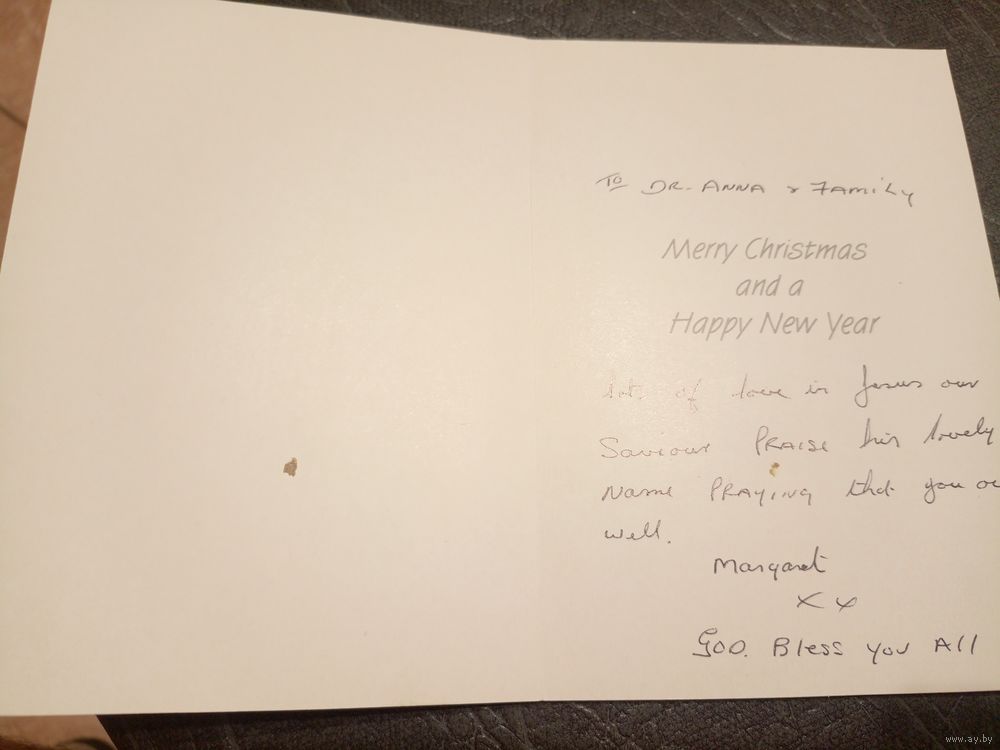 To DR. ANNA & FAMILY
Merry Christmas
and a
Happy New Year
lots of love in Jesus our
Saviour PRAISE his lovely
Name PRAYING that you
well.
Margaret
x x
GOD. Bless you All
www.ay.by